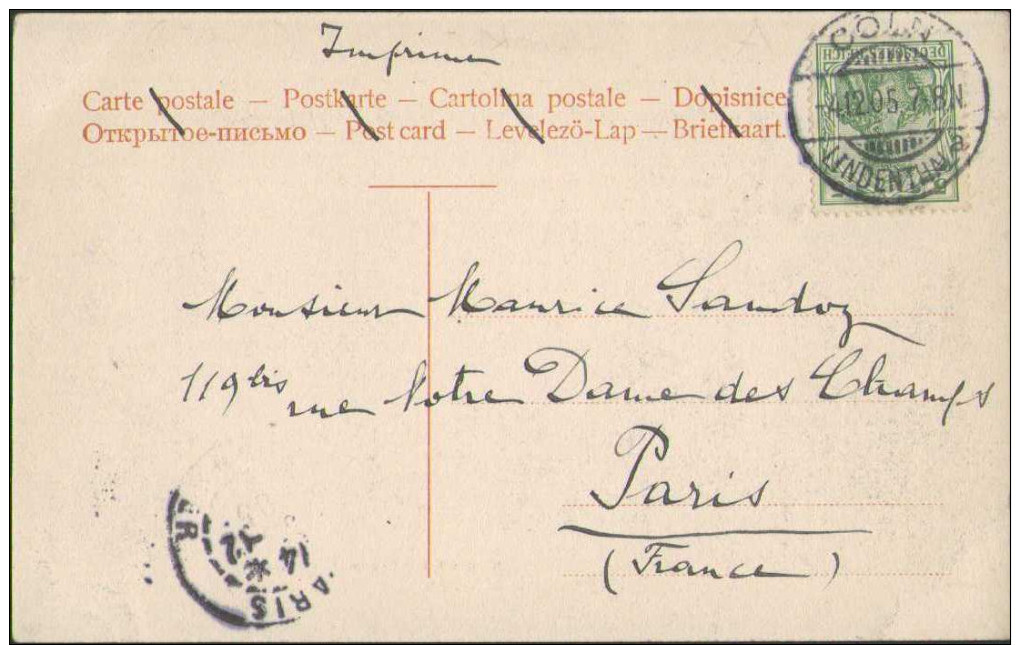 Imprimé
Carte postale – Postkarte – Cartolina postale – Dopisnice
Открытое-письмо – Post card – Levelezö-Lap – Briefkaart.
CÖLN
4.12.05. 7-8 N.
LINDENTHAL a
DEUTSCHES REICH
Monsieur Maurice Sandoz
119 bis rue Notre Dame des Champs
Paris
(France)
14
12
ARIS